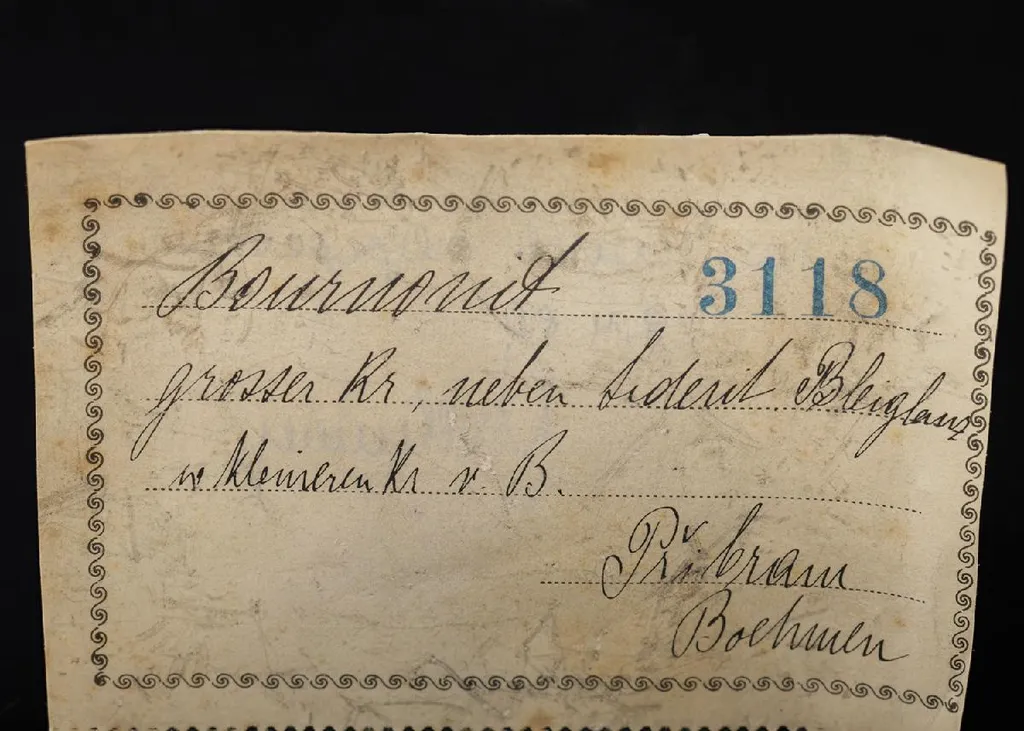 Bournonit 3118
grosser Kr, neben Siderit. Bleiglanz
u kleineren Kr v B.
Přibram
Boehmen